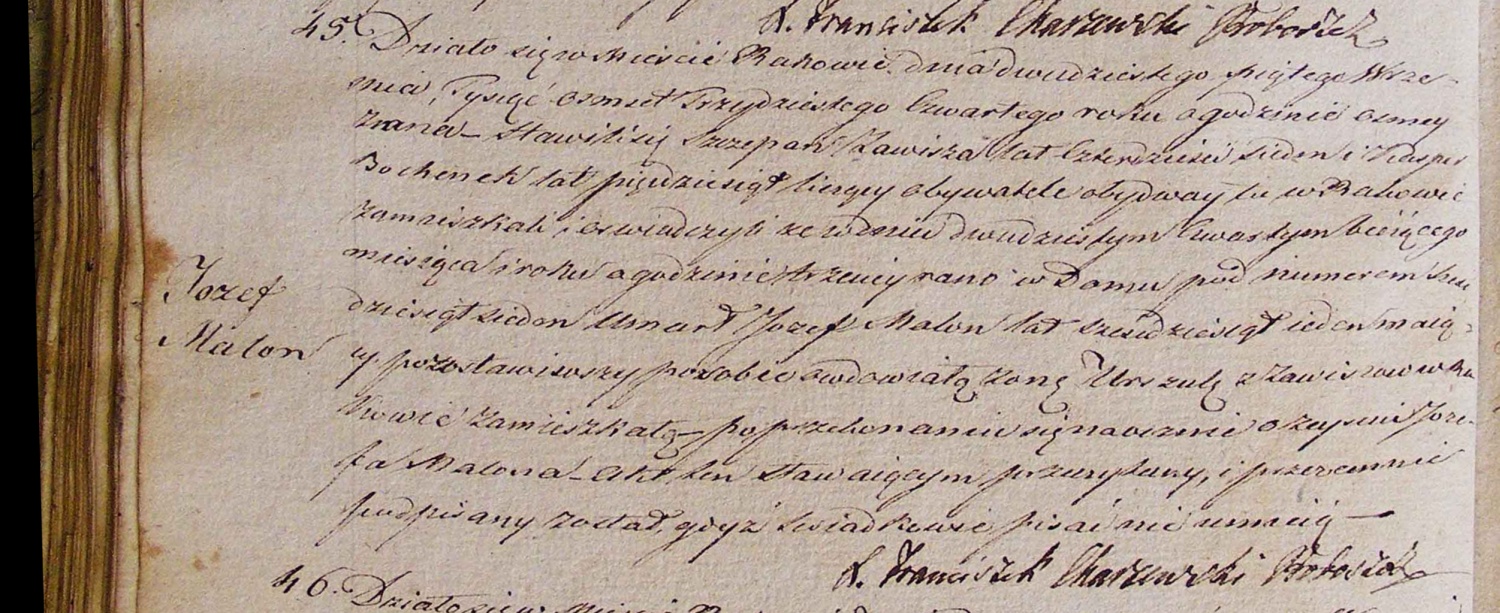 X. Franciszek Charzewski Proboszcz
45. Działo się w Mieście Rakowie dnia dwudziestego piątego Wrze-
snia, Tysiąc osmset Trzydziestego Czwartego roku o godzinie osmey
zrana – Stawili się Szczepan Zawisza lat Czterdzieści siedem i Kasper
Bochenek lat pięćdziesiąt liczący obywatele obydway tu w Rakowie
zamieszkali i oswiadczyli ze w dniu dwudziestym Czwartym bieżącego
miesiąca i roku o godzinie trzeciey rano w Domu pod numerem
dziesiąt siedem Umarł Jozef Malon lat sześćdziesiąt ieden maią-
Jozef
Malon
cy pozostawiwszy po sobie owdowiałą żonę Urszulę z Zawiszow w Ra
kowie zamieszkałą – po przekonaniu się naocznie o zeyściu Joze-
fa Malona – Akt ten stawaiącym przeczytany, i przezemnie
podpisany został, gdyż swiadkowie pisać nie umieią –
X. Franciszek Charzewski Proboszcz
46. Działo się w Mieście